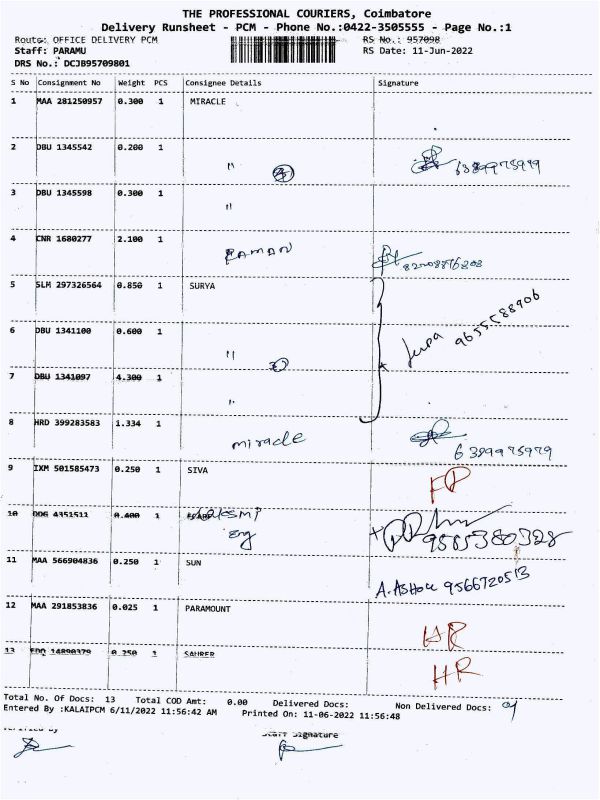 THE PROFESSIONAL COURIERS, Coimbatore
Delivery Runsheet - PCM - Phone No.:0422-3505555 - Page No.:1
Route: OFFICE DELIVERY PCM RS No.: 957098
Staff: PARAMU RS Date: 11-Jun-2022
DRS No.: DCJB95709801
S No Consignment No Weight PCS Consignee Details Signature
1 MAA 281250957 0.300 1 MIRACLE
2 DBU 1345542 0.200 1 "
3 DBU 1345598 0.300 1 "
4 CNR 1680277 2.100 1 RAMAN
5 SLM 297326564 0.850 1 SURYA
6 DBU 1341100 0.600 1 "
9655588906
7 DBU 1341097 4.300 1 "
8 HRD 399283583 1.334 1 miracle
9 IXM 501585473 0.250 1 SIVA
10 4351511 0.400 1
9565380328
11 MAA 566904836 0.250 1 SUN A. ASHOK 9566720513
12 MAA 291853836 0.025 1 PARAMOUNT HR
13 EDQ 14890379 0.250 1 HR
Total No. Of Docs: 13 Total COD Amt: 0.00 Delivered Docs: Non Delivered Docs:
Entered By :KALAIPCM 6/11/2022 11:56:42 AM Printed On: 11-06-2022 11:56:48
Verified By Staff Signature